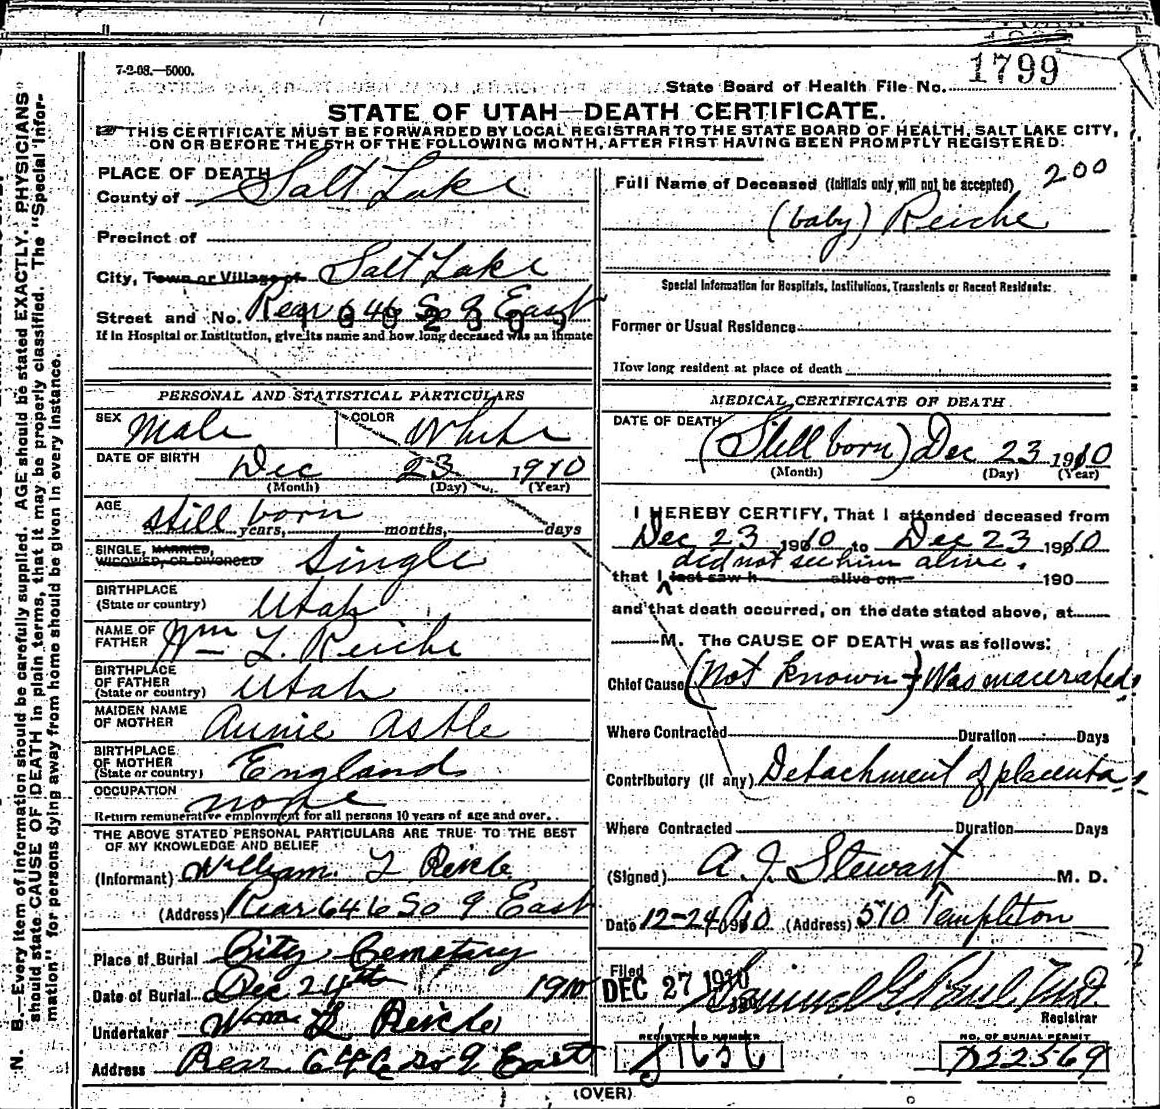 7-2-08.—5000.
State Board of Health File No. 1799
STATE OF UTAH—DEATH CERTIFICATE.
THIS CERTIFICATE MUST BE FORWARDED BY LOCAL REGISTRAR TO THE STATE BOARD OF HEALTH, SALT LAKE CITY,
ON OR BEFORE THE 5TH OF THE FOLLOWING MONTH, AFTER FIRST HAVING BEEN PROMPTLY REGISTERED.
PLACE OF DEATH
County of Salt Lake
Precinct of
City, Town or Village of Salt Lake
Street and No. Rear 646 So 9 East
If in Hospital or Institution, give its name and how long deceased was an inmate
PERSONAL AND STATISTICAL PARTICULARS
SEX Male COLOR White
DATE OF BIRTH Dec 23 1910
(Month) (Day) (Year)
AGE still born years, months, days
SINGLE, MARRIED,
WIDOWED, OR DIVORCED Single
BIRTHPLACE
(State or country) Utah
NAME OF
FATHER Wm L. Reiche
BIRTHPLACE
OF FATHER
(State or country) Utah
MAIDEN NAME
OF MOTHER Annie Astle
BIRTHPLACE
OF MOTHER
(State or country) England
OCCUPATION none
Return remunerative employment for all persons 10 years of age and over.
THE ABOVE STATED PERSONAL PARTICULARS ARE TRUE TO THE BEST
OF MY KNOWLEDGE AND BELIEF
(Informant) William L Reiche
(Address) Rear 646 So 9 East
Place of Burial City Cemetary
Date of Burial Dec 24th 1910
Undertaker Wm L Reiche
Address Rear 646 so 9 East
Full Name of Deceased (Initials only will not be accepted) 200
(baby) Reiche
Special Information for Hospitals, Institutions, Transients or Recent Residents:
Former or Usual Residence
How long resident at place of death
MEDICAL CERTIFICATE OF DEATH
DATE OF DEATH (Still born) Dec 23 1910
(Month) (Day) (Year)
I HEREBY CERTIFY, That I attended deceased from
Dec 23 1910 to Dec 23 1910
did not see him alive.
that I last saw h alive on 190
and that death occurred, on the date stated above, at
M. The CAUSE OF DEATH was as follows:
Chief Cause (Not known) Was macerated
Where Contracted Duration Days
Contributory (if any) Detachment of placenta
Where Contracted Duration Days
(Signed) A. J. Stewart M. D.
Date 12-24 1910 (Address) 510 Templeton
Filed
DEC 27 1910 Samuel G. Paul M.D.
Registrar
REGISTERED NUMBER NO. OF BURIAL PERMIT
J1636 D32569
(OVER)
N. B.—Every item of information should be carefully supplied. AGE should be stated EXACTLY. PHYSICIANS
should state CAUSE OF DEATH in plain terms, that it may be properly classified. The "Special Information"
for persons dying away from home should be given in every instance.